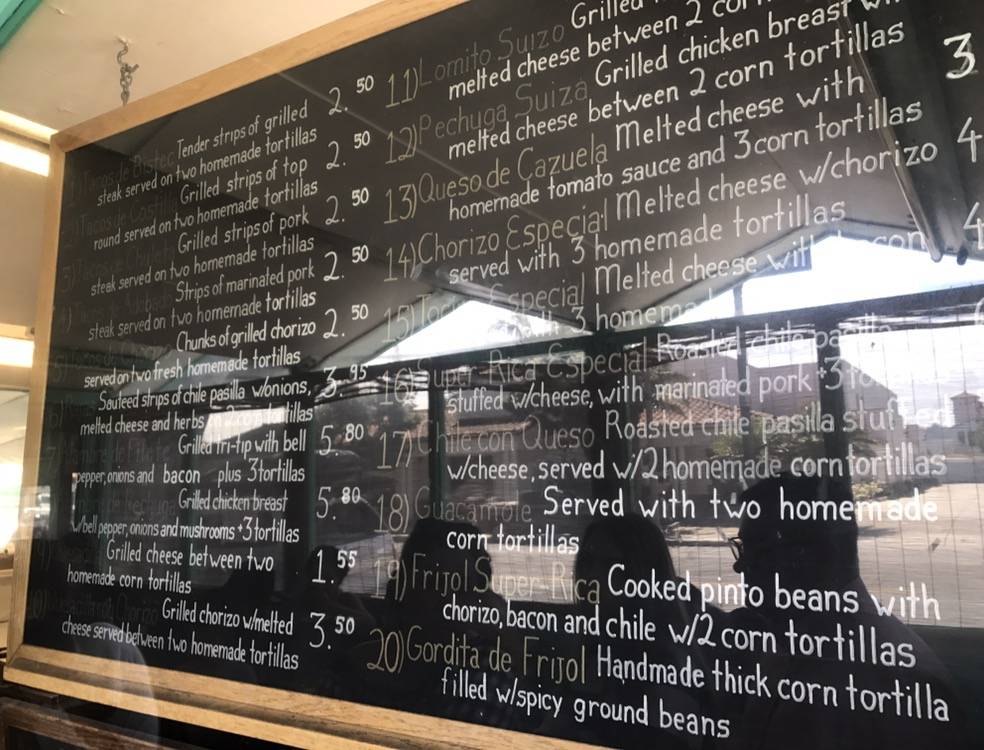 Tacos de Bistec Tender strips of grilled 2.50
steak served on two homemade tortillas
Grilled strips of top 2.50
round served on two homemade tortillas
Grilled strips of pork 2.50
steak served on two homemade tortillas
Strips of marinated pork 2.50
steak served on two homemade tortillas
Chunks of grilled chorizo 2.50
served on two fresh homemade tortillas
Sauteed strips of chile pasilla w/onions, 3.95
melted cheese and herbs on 2 corn tortillas
Grilled tri-tip with bell 5.80
pepper, onions and bacon plus 3 tortillas
Grilled chicken breast 5.80
w/bell pepper, onions and mushrooms +3 tortillas
Grilled cheese between two 1.55
homemade corn tortillas
Grilled chorizo w/melted 3.50
cheese served between two homemade tortillas
11) Lomito Suizo Grilled
melted cheese between 2
12) Pechuga Suiza Grilled chicken breast
melted cheese between 2 corn tortillas 3
13) Queso de Cazuela Melted cheese with
homemade tomato sauce and 3 corn tortillas 4
14) Chorizo Especial Melted cheese w/chorizo
served with 3 homemade tortillas 4
15) Especial Melted cheese
3
16) Super-Rica Especial Roasted chile pasilla
stuffed w/cheese, with marinated pork +3
17) Chile con Queso Roasted chile pasilla stuffed
w/cheese, served w/2 homemade corn tortillas
18) Guacamole Served with two homemade
corn tortillas
19) Frijol Super-Rica Cooked pinto beans with
chorizo, bacon and chile w/2 corn tortillas
20) Gordita de Frijol Handmade thick corn tortilla
filled w/spicy ground beans